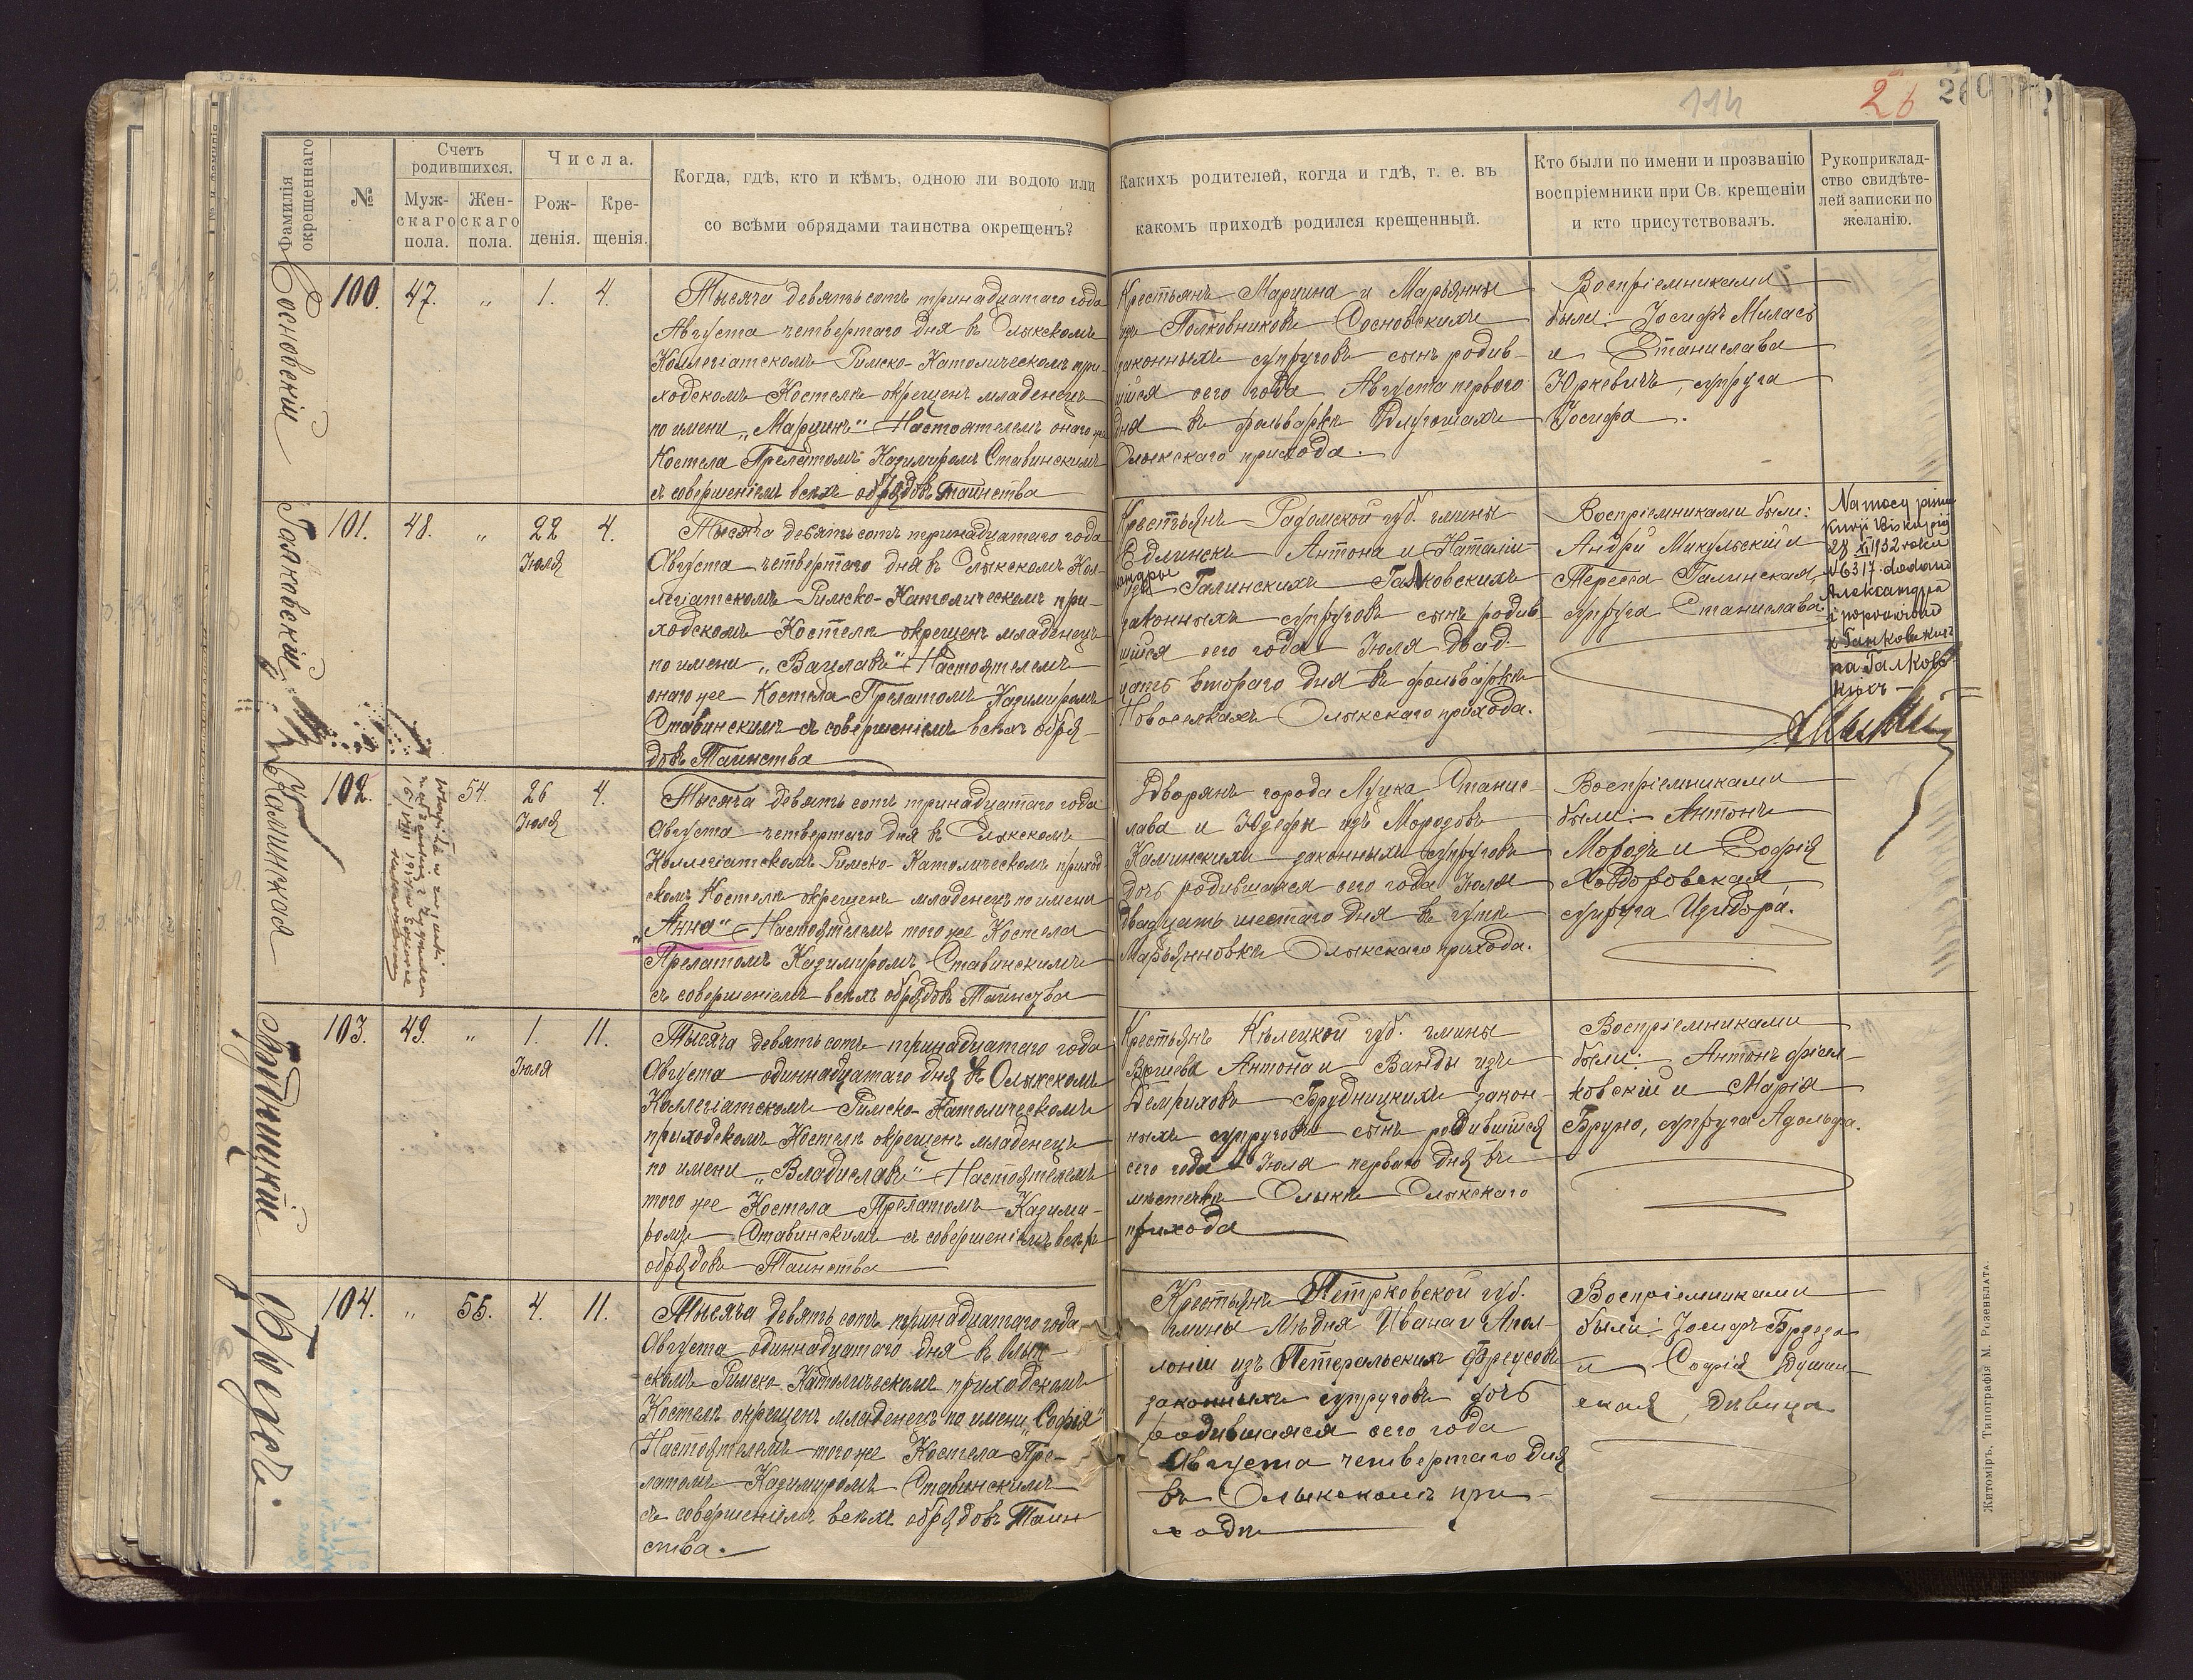 114
26
26
Фамилія окрещеннаго
№
Счетъ родившихся.
Мужскаго пола.
Женскаго пола.
Числа.
Рожденія.
Крещенія.
Когда, гдѣ, кто и кѣмъ, одною ли водою или
со всѣми обрядами таинства окрещенъ?
Какихъ родителей, когда и гдѣ, т. е. въ
какомъ приходѣ родился крещенный.
Кто были по имени и прозванію
воспріемники при Св. крещеніи
и кто присутствовалъ.
Рукоприклад-
ство свидѣте-
лей записки по
желанію.
Сосновскій
100. 47. „ 1. 4.
Тысяча девятьсотъ тринадцатаго года
Августа четвертаго дня въ Олыкскомъ
Коллегіатскомъ Римско-Католическомъ при-
ходскомъ Костелѣ окрещенъ младенецъ
по имени „Марцинъ" Настоятелемъ онаго же
Костела Прелатомъ Казимиромъ Ставинскимъ
съ совершеніемъ всѣхъ обрядовъ Таинства
Крестьянъ Марцина и Марьянны
изъ Полковниковъ Сосновскихъ
законныхъ супруговъ сынъ родив-
шійся сего года Августа перваго
дня въ фольваркѣ Длугошахъ
Олыкскаго прихода.
Воспріемниками
были: Іосифъ Миласъ
и Станислава
Юркевичъ, супруга
Іосифа.
101. 48. „ 22 4.
Іюля
Тысяча девятьсотъ тринадцатаго года
Августа четвертаго дня въ Олыкскомъ Кол-
легіатскомъ Римско-Католическомъ при-
ходскомъ Костелѣ окрещенъ младенецъ
по имени „Вацлавъ" Настоятелемъ
онаго же Костела Прелатомъ Казимиромъ
Ставинскимъ съ совершеніемъ всѣхъ обря-
довъ Таинства
Крестьянъ Радомской губ. гмины
Едлинскъ Антона и Наталіи
изъ Галинскихъ Галковскихъ
законныхъ супруговъ сынъ родив-
шійся сего года Іюля двад-
цать втораго дня въ фольваркѣ
Новоселкахъ Олыкскаго прихода.
Воспріемниками были:
Андрей Микульскій и
Тереса Галинская,
супруга Станислава.
Na mocy pisma
Kurji Biskupiej
28 XI 1932 roku
N 6317 dodano
Александра
i poprawiono
z Ганковскихъ
на Галков-
скихъ
Каминская
102. 54. 26 4.
Іюля
Тысяча девятьсотъ тринадцатаго года
Августа четвертаго дня въ Олыкскомъ
Коллегіатскомъ Римско-Католическомъ приход-
скомъ Костелѣ окрещенъ младенецъ по имени
„Анна" Настоятелемъ того же Костела
Прелатомъ Казимиромъ Ставинскимъ
съ совершеніемъ всѣхъ обрядовъ Таинства
Дворянъ города Луцка Станис-
лава и Юзефы изъ Морозовъ
Каминскихъ законныхъ супруговъ
дочь родившаяся сего года Іюля
двадцать шестаго дня въ гутѣ
Марьянновкѣ Олыкскаго прихода.
Воспріемниками
были: Антонъ
Морозъ и Софія
Ходоровская,
супруга Изидора.
Брудницкій
103. 49. „ 1. 11.
Іюля
Тысяча девятьсотъ тринадцатаго года
Августа одиннадцатаго дня въ Олыкскомъ
Коллегіатскомъ Римско-Католическомъ
приходскомъ Костелѣ окрещенъ младенецъ
по имени „Владиславъ" Настоятелемъ
того же Костела Прелатомъ Казими-
ромъ Ставинскимъ съ совершеніемъ всѣхъ
обрядовъ Таинства
Крестьянъ Кѣлецкой губ. гмины
Антона и Ванды изъ
Брудницкихъ закон-
ныхъ супруговъ сынъ родившійся
сего года Іюля перваго дня въ
мѣстечкѣ Олыкѣ Олыкскаго
прихода
Воспріемниками
были: Антонъ Фіял-
ковскій и Марія
Бруно, супруга Адольфа.
Фреусъ.
104. „ 55. 4. 11.
Тысяча девятьсотъ тринадцатаго года
Августа одиннадцатаго дня въ Олык-
скомъ Римско-Католическомъ приходскомъ
Костелѣ окрещенъ младенецъ по имени „Софія"
Настоятелемъ того же Костела Пре-
латомъ Казимиромъ Ставинскимъ
съ совершеніемъ всѣхъ обрядовъ Таин-
ства.
Крестьянъ Петрковской губ.
гмины Ивана и Апол-
лоніи изъ Петеральскихъ Фреусовъ
законныхъ супруговъ дочь
родившаяся сего года
Августа четвертаго дня
въ Олыкскомъ при-
ходѣ
Воспріемниками
были: Іосифъ Брдеза
и Софія Душин-
ская, дѣвица
Житоміръ, Типографія М. Розенблата.